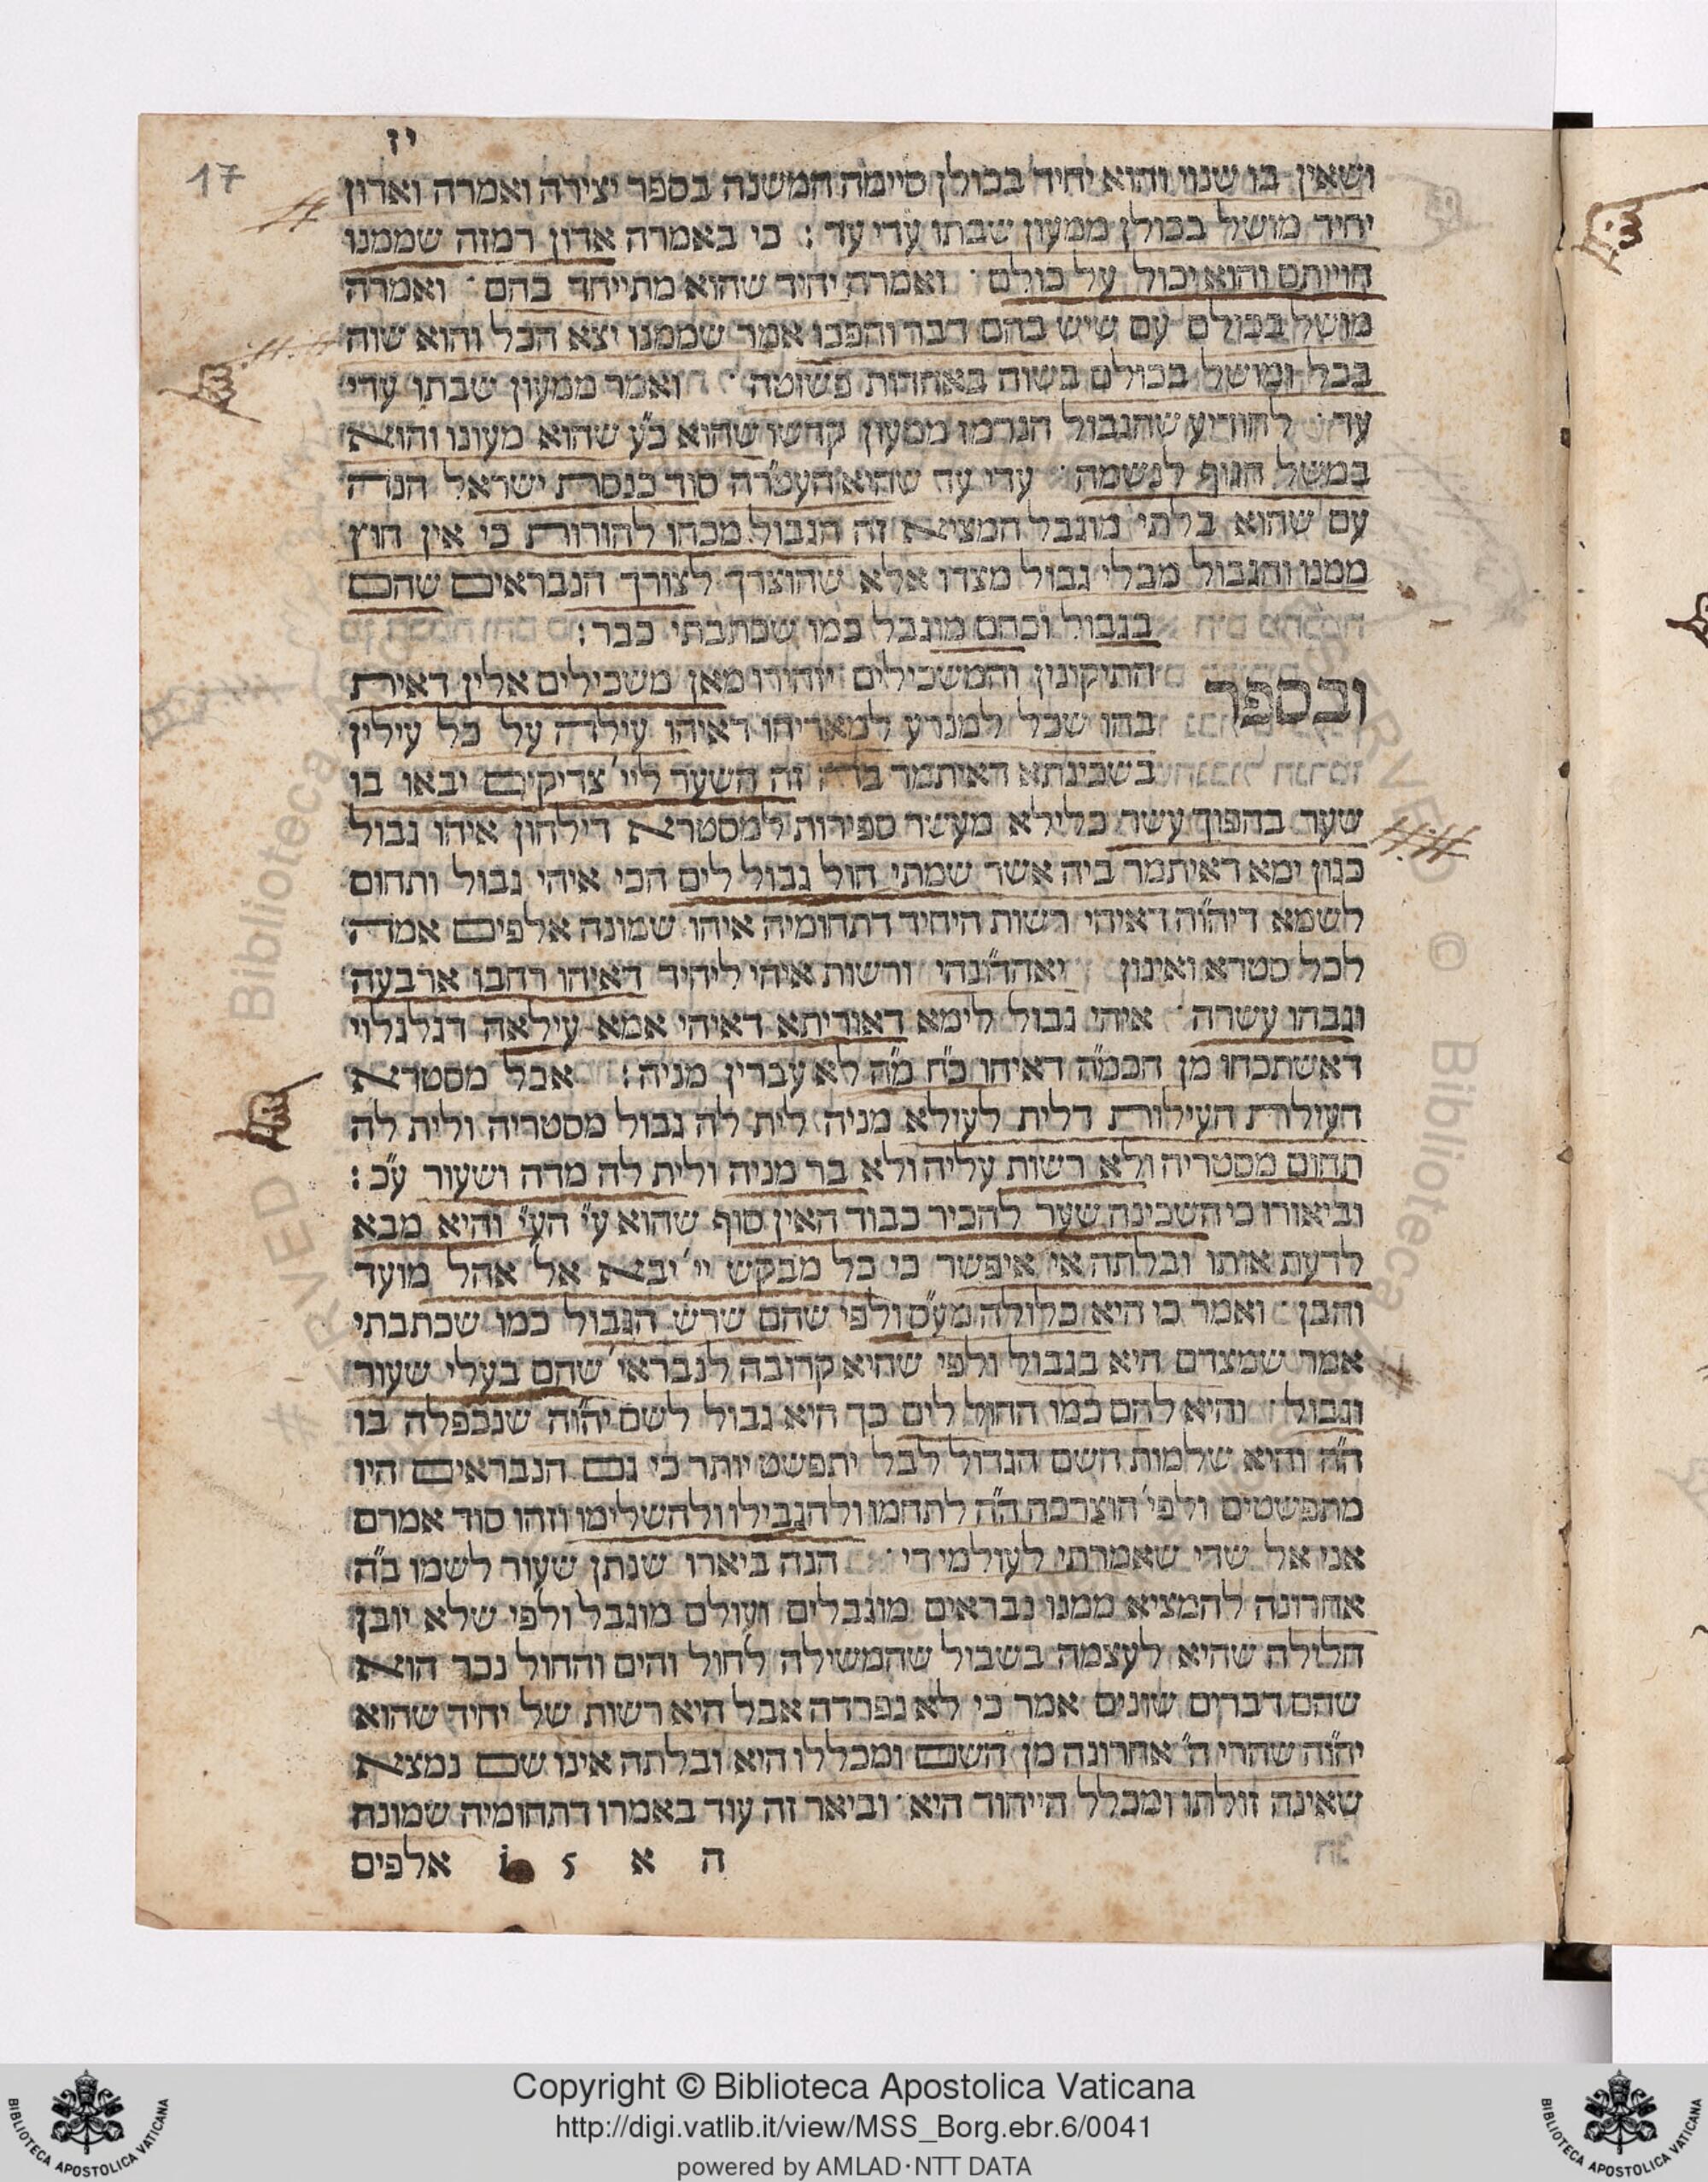 יז
17
ושאין בו שנוי והוא יחיד בכולן סיימה המשנה בספר יצירה ואמרה ואדון
יחיד מושל בכולן ממעון שבתו עדי עד : כי באמרה אדון רמזה שממנו
חוייתם והוא יכול על כולם ואמרה יחיד שהוא מתייחד בהם ואמרה
מושל בכולם עם שיש בהם דבר והפכו אמר שממנו יצא הכל והוא שוה
בכל ומושל בכולם בשוה באחדות פשוטה ואמר ממעון שבתו עדי
עד להודיע שהגבול הנרמז ממעון קדשו שהוא כ"ע שהוא מעונו והוא
במשל הגוף לנשמה עדי עד שהוא העטרה סוד כנסת ישראל הנה
עם שהוא בלתי מוגבל המציא זה הגבול מכחו להורות כי אין חוץ
ממנו והגבול מבלי גבול מצדו אלא שהוצרך לצורך הנבראים שהם
בגבול ובהם מוגבל כמו שכתבתי כבר :
ובספר התיקונין והמשכילים יזהירו מאן משכילים אלין דאית
בהו שכל למנדע למאריהו דאיהו עילה על כל עילין
בשכינתא דאיתמר בה זה השער ליי' צדיקים יבאו בו
שער בהפוך עשר כלילא מעשר ספירות למסטרא דילהון איהו גבול
כגון ימא דאיתמר ביה אשר שמתי חול גבול לים הכי איהי גבול ותחום
לשמא דיהו"ה דאיהי רשות היחיד דתחומיה איהו שמונה אלפים אמה
לכל סטרא ואינון יאהדונהי ורשות איהי ליחיד דאיהו רחבו ארבעה
וגבהו עשרה איהי גבול לימא דאוריתא דאיהי אמא עילאה דגלגלוי
דאשתכחו מן חכמ"ה דאיהו כ"ח מ"ה לא עברין מניה : אבל מסטרא
העולת העילות דלית לעילא מניה לית לה גבול מסטריה ולית לה
תחום מסטריה ולא רשות עליה ולא בר מניה ולית לה מדה ושעור ע"כ :
וביאורו כי השכינה שער להכיר כבוד האין סוף שהוא ע"י הע"י והיא מבא
לדעת אותו ובלתה אי איפשר כי כל מבקש יי' יבא אל אהל מועד
והבן ואמר כי היא כלולה מע"ס ולפי שהם שרש הגבול כמו שכתבתי
אמר שמצדם היא בגבול ולפי שהיא קרובה לנבראי' שהם בעלי שעור
וגבול והיא להם כמו החול לים כך היא גבול לשם יהו"ה שנכפלה בו
ה"ה והיא שלמות השם הגדול לבל יתפשט יותר כי גם הנבראים היו
מתפשטים ולפי' הוצרכה ה"ה לתחמו ולהגבילו ולהשלימו וזהו סוד אמרם
אני אל שדי שאמרתי לעולמי די הנה ביארו שנתן שעור לשמו בה"ה
אחרונה להמציא ממנו נבראים מוגבלים ועולם מוגבל ולפי שלא יובן
חלילה שהיא לעצמה בשבול שהמשילה לחול והים והחול נכר הוא
שהם דברים שונים אמר כי לא נפרדה אבל היא רשות של יחיד שהוא
יהו"ה שהרי ה' אחרונה מן השם ומכללו היא ובלתה אינו שם נמצא
שאינה זולתו ומכלל הייחוד היא וביאר זה עוד באמרו דתחומיה שמונה
ה א 5 i אלפים
Copyright © Biblioteca Apostolica Vaticana
http://digi.vatlib.it/view/MSS_Borg.ebr.6/0041
powered by AMLAD·NTT DATA